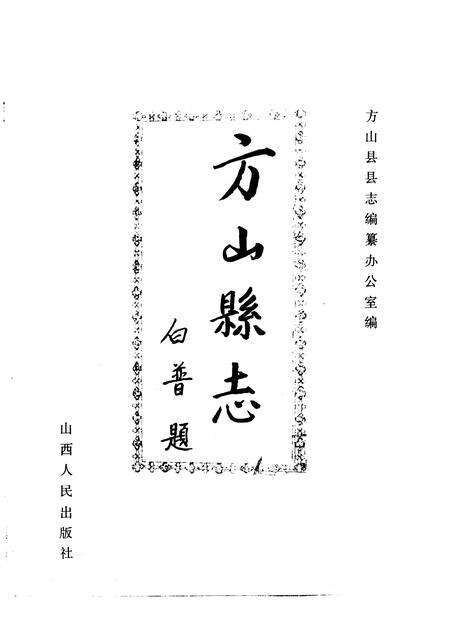 方山县县志编纂办公室编
方山縣志
白普题
山西人民出版社